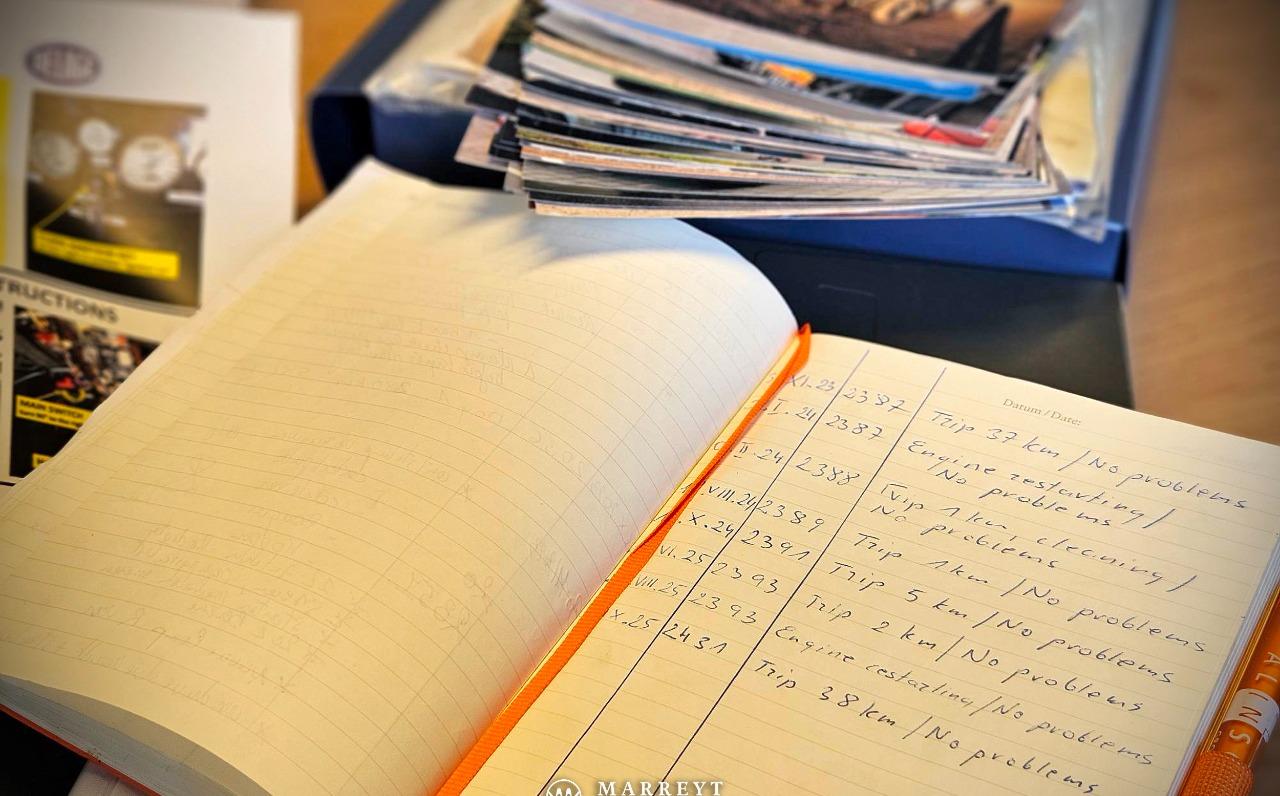 DELAGE
TRUCTIONS
MAIN SWITCH
Datum / Date:
XI.23 2387 Trip 37 km / No problems
I.24 2387 Engine restarting /
No problems
II.24 2388 Trip 1 km, cleaning /
No problems
VIII.24 2389 Trip 1 km / No problems
X.24 2391 Trip 5 km / No problems
VI.25 2393 Trip 2 km / No problems
VIII.25 2393 Engine restarting / No problems
X.25 2431 Trip 38 km / No problems
ALINS
MARREYT